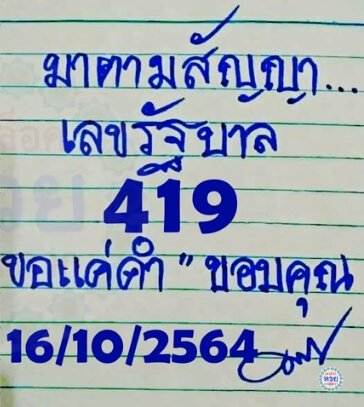 มาตามสัญญา...
เลขรัฐบาล
419
ขอแค่คำ " ขอบคุณ
16/10/2564